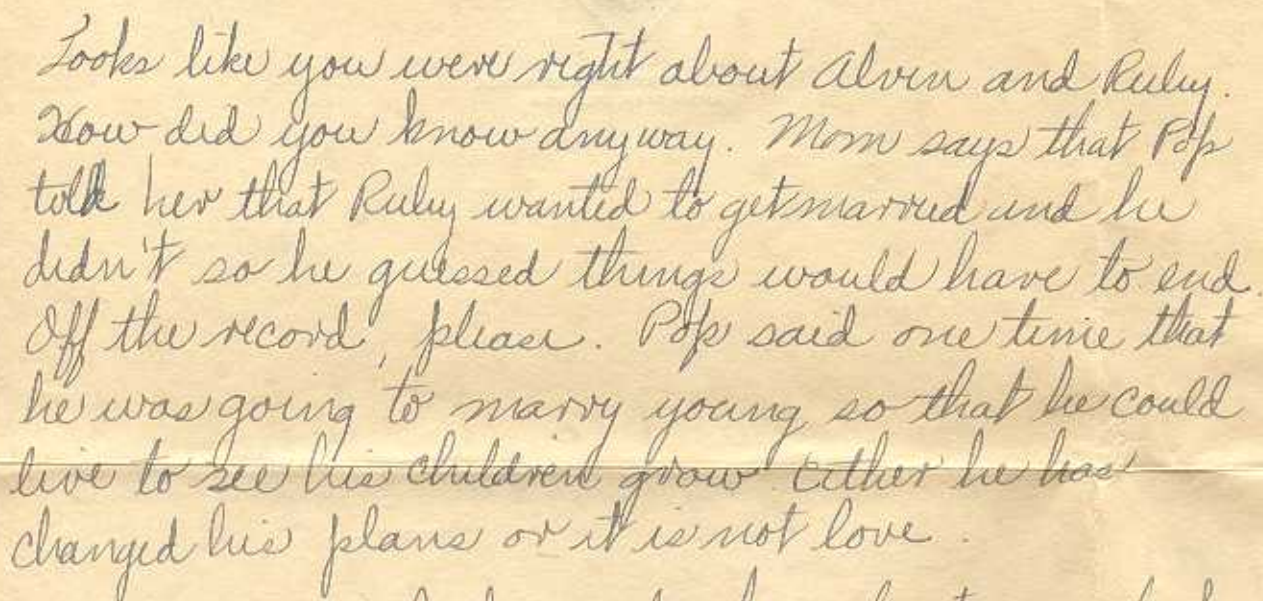 Looks like you were right about Alvin and Ruby.
How did you know anyway. Mom says that Pop
told her that Ruby wanted to get married and he
didn't so he guessed things would have to end.
Off the record, please. Pop said one time that
he was going to marry young so that he could
live to see his children grow. Either he has
changed his plans or it is not love.